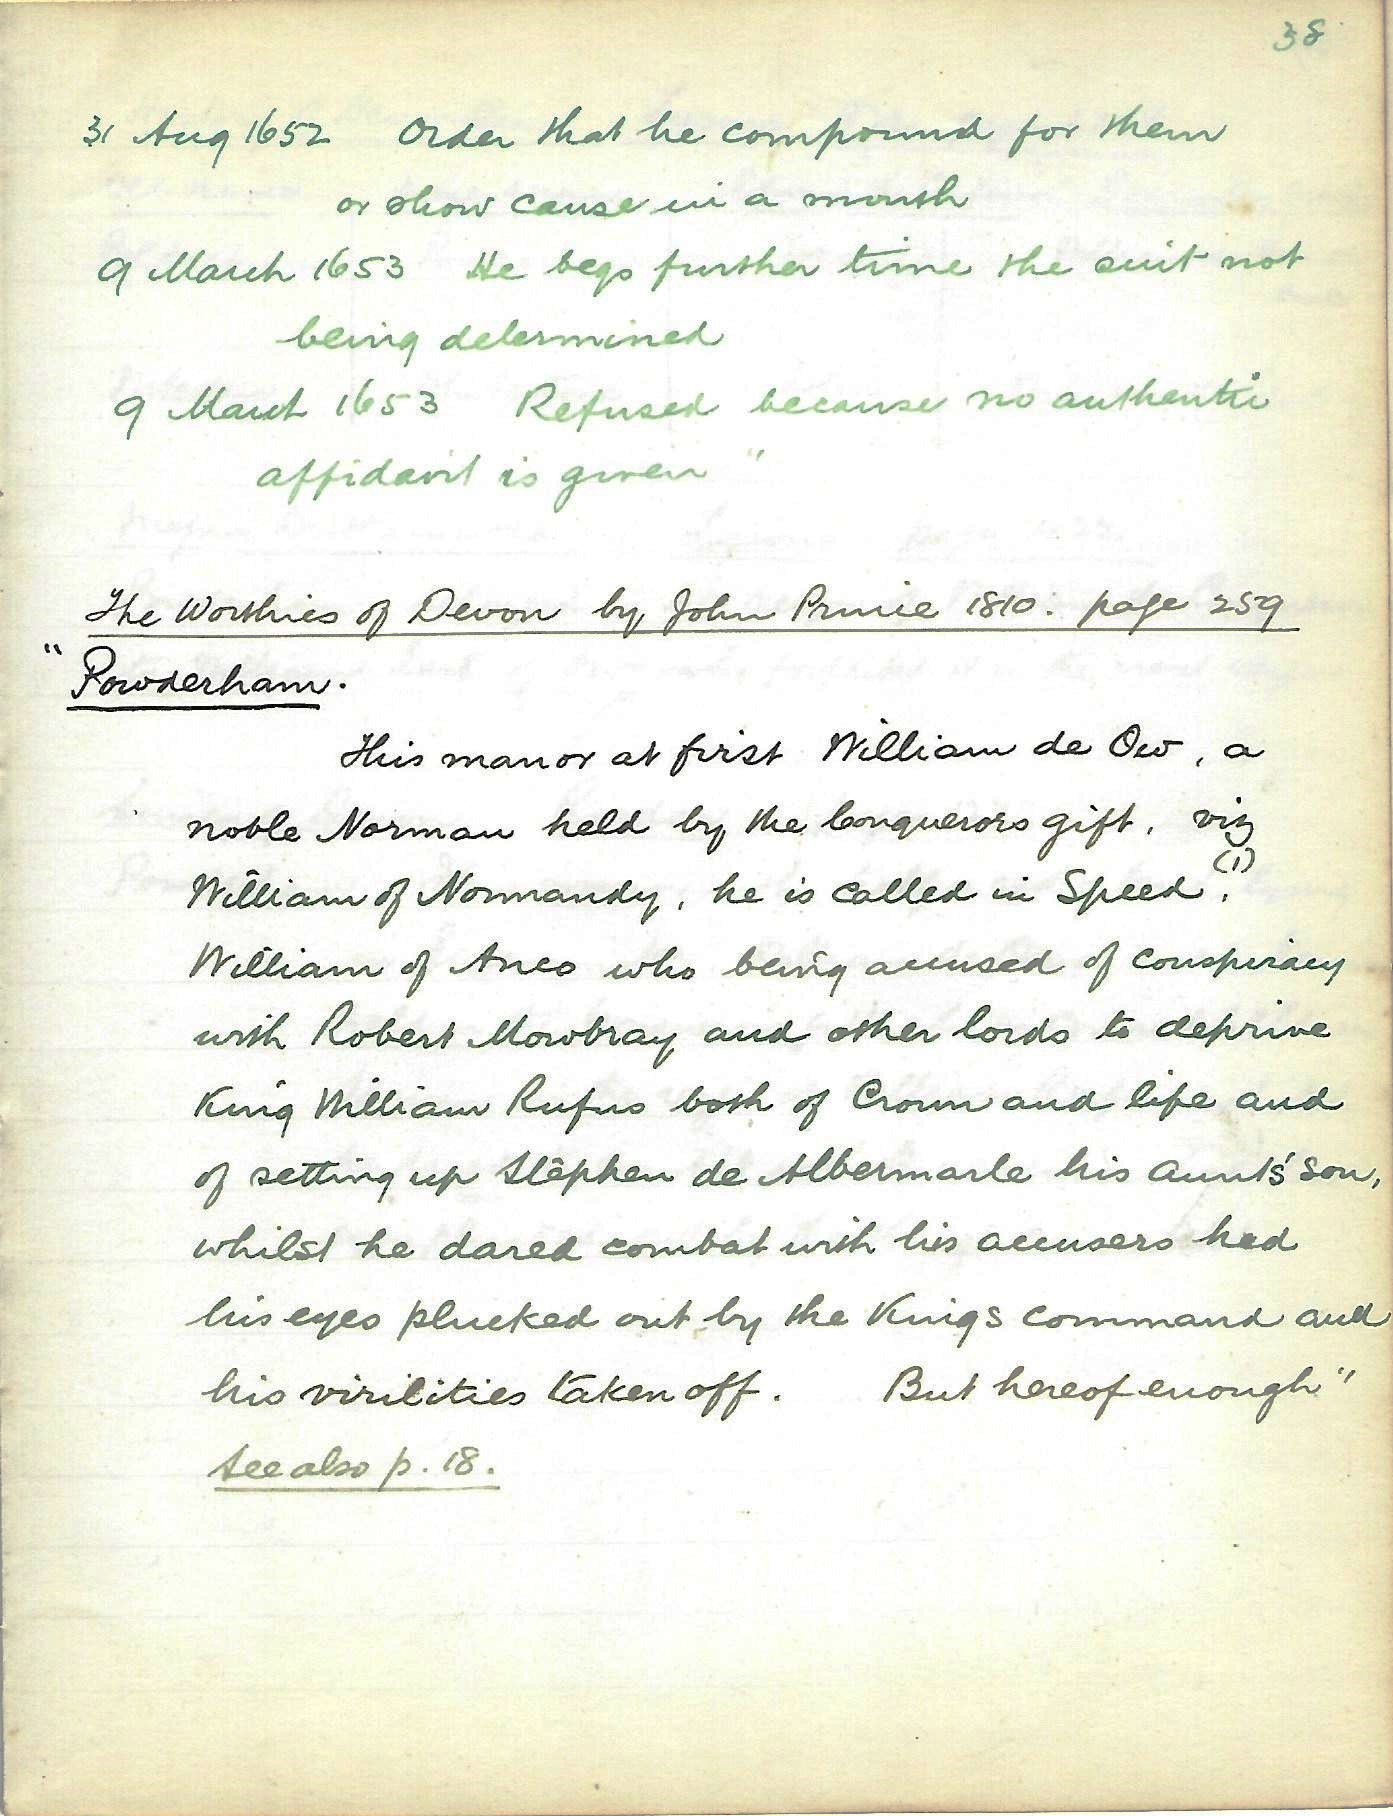 38
31 Aug 1652 Order that he compound for them
or show cause in a month
9 March 1653 He begs further time the suit not
being determined
9 March 1653 Refused because no authentic
affidavit is given "
The Worthies of Devon by John Prince 1810. page 259
" Powderham.
This manor at first William de Ow, a
noble Norman held by the Conquerors gift, viz
William of Normandy, he is called in Speed (1).
William of Anco who being accused of conspiracy
with Robert Mowbray and other lords to deprive
King William Rufus both of Crown and life and
of setting up Stephen de Albermarle his aunt's son,
whilst he dared combat with his accusers had
his eyes plucked out by the Kings command and
his virilities taken off. But hereof enough"
See also p. 18.